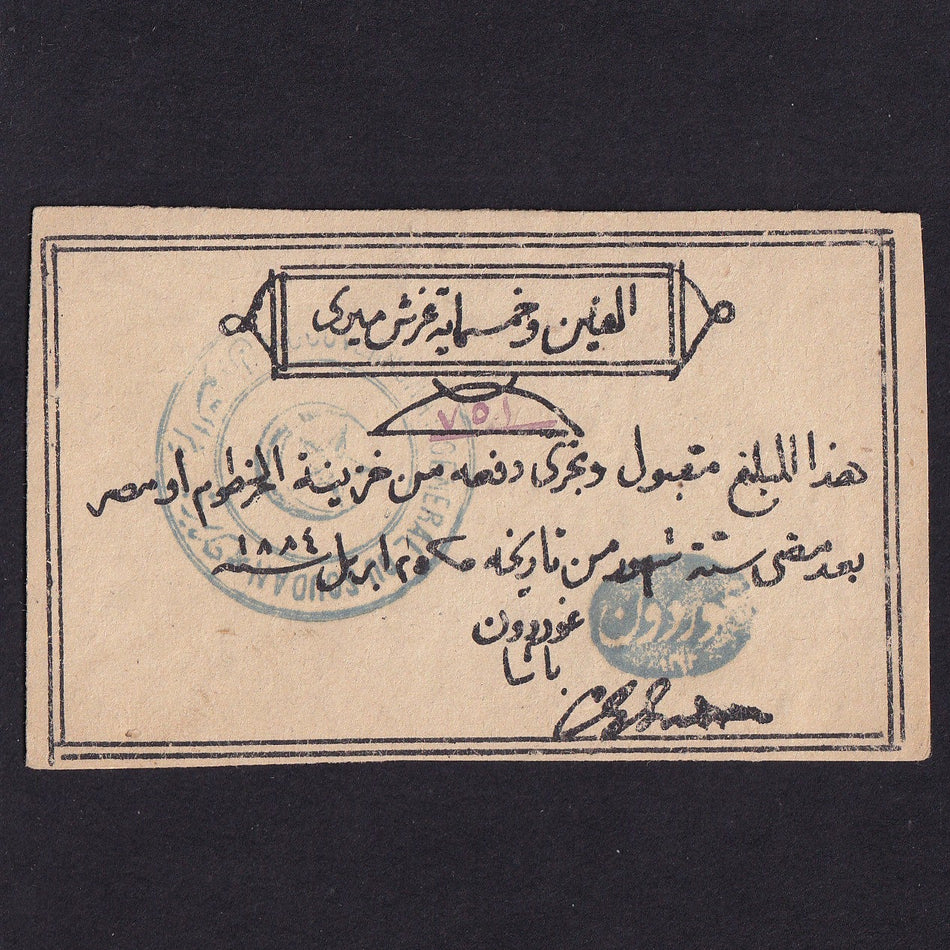 الفين وخمسماية غرش ميرى
٧٥١
هذا المبلغ مقبول ويجرى دفعه من خزينة الخرطوم أو مصر
بعد مضى ستة شهور من تاريخه ٢٥ ابريل سنة ١٨٨٤
غوردون
باشا
GENERAL SOUDAN